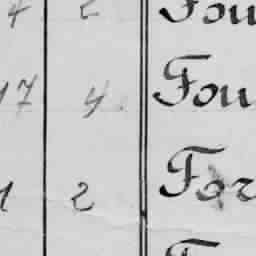 4 2 Fou
17 4 Fou
1 2 For